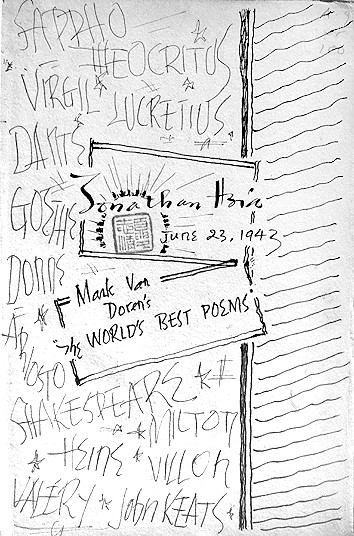 SAPPHO
THEOCRITUS
VIRGIL
LUCRETIUS
DANTE
Jonathan Hsia
GOETHE
JUNE 23, 1943
DONNE
Mark Van
Doren's
The WORLD'S BEST POEMS
ARIOSTO
SHAKESPEARE
MILTON
HEINE
VILLON
VALERY
John KEATS